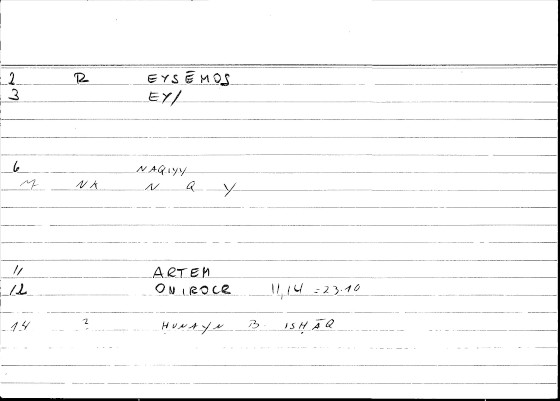 2 R EYSĒMOS
3 EY/
6 NAQIYY
M NA N Q Y
11 ARTEM
12 ONIROCR 11,14 = 23.10
14 ? ḤUNAYN B. ISḤĀQ